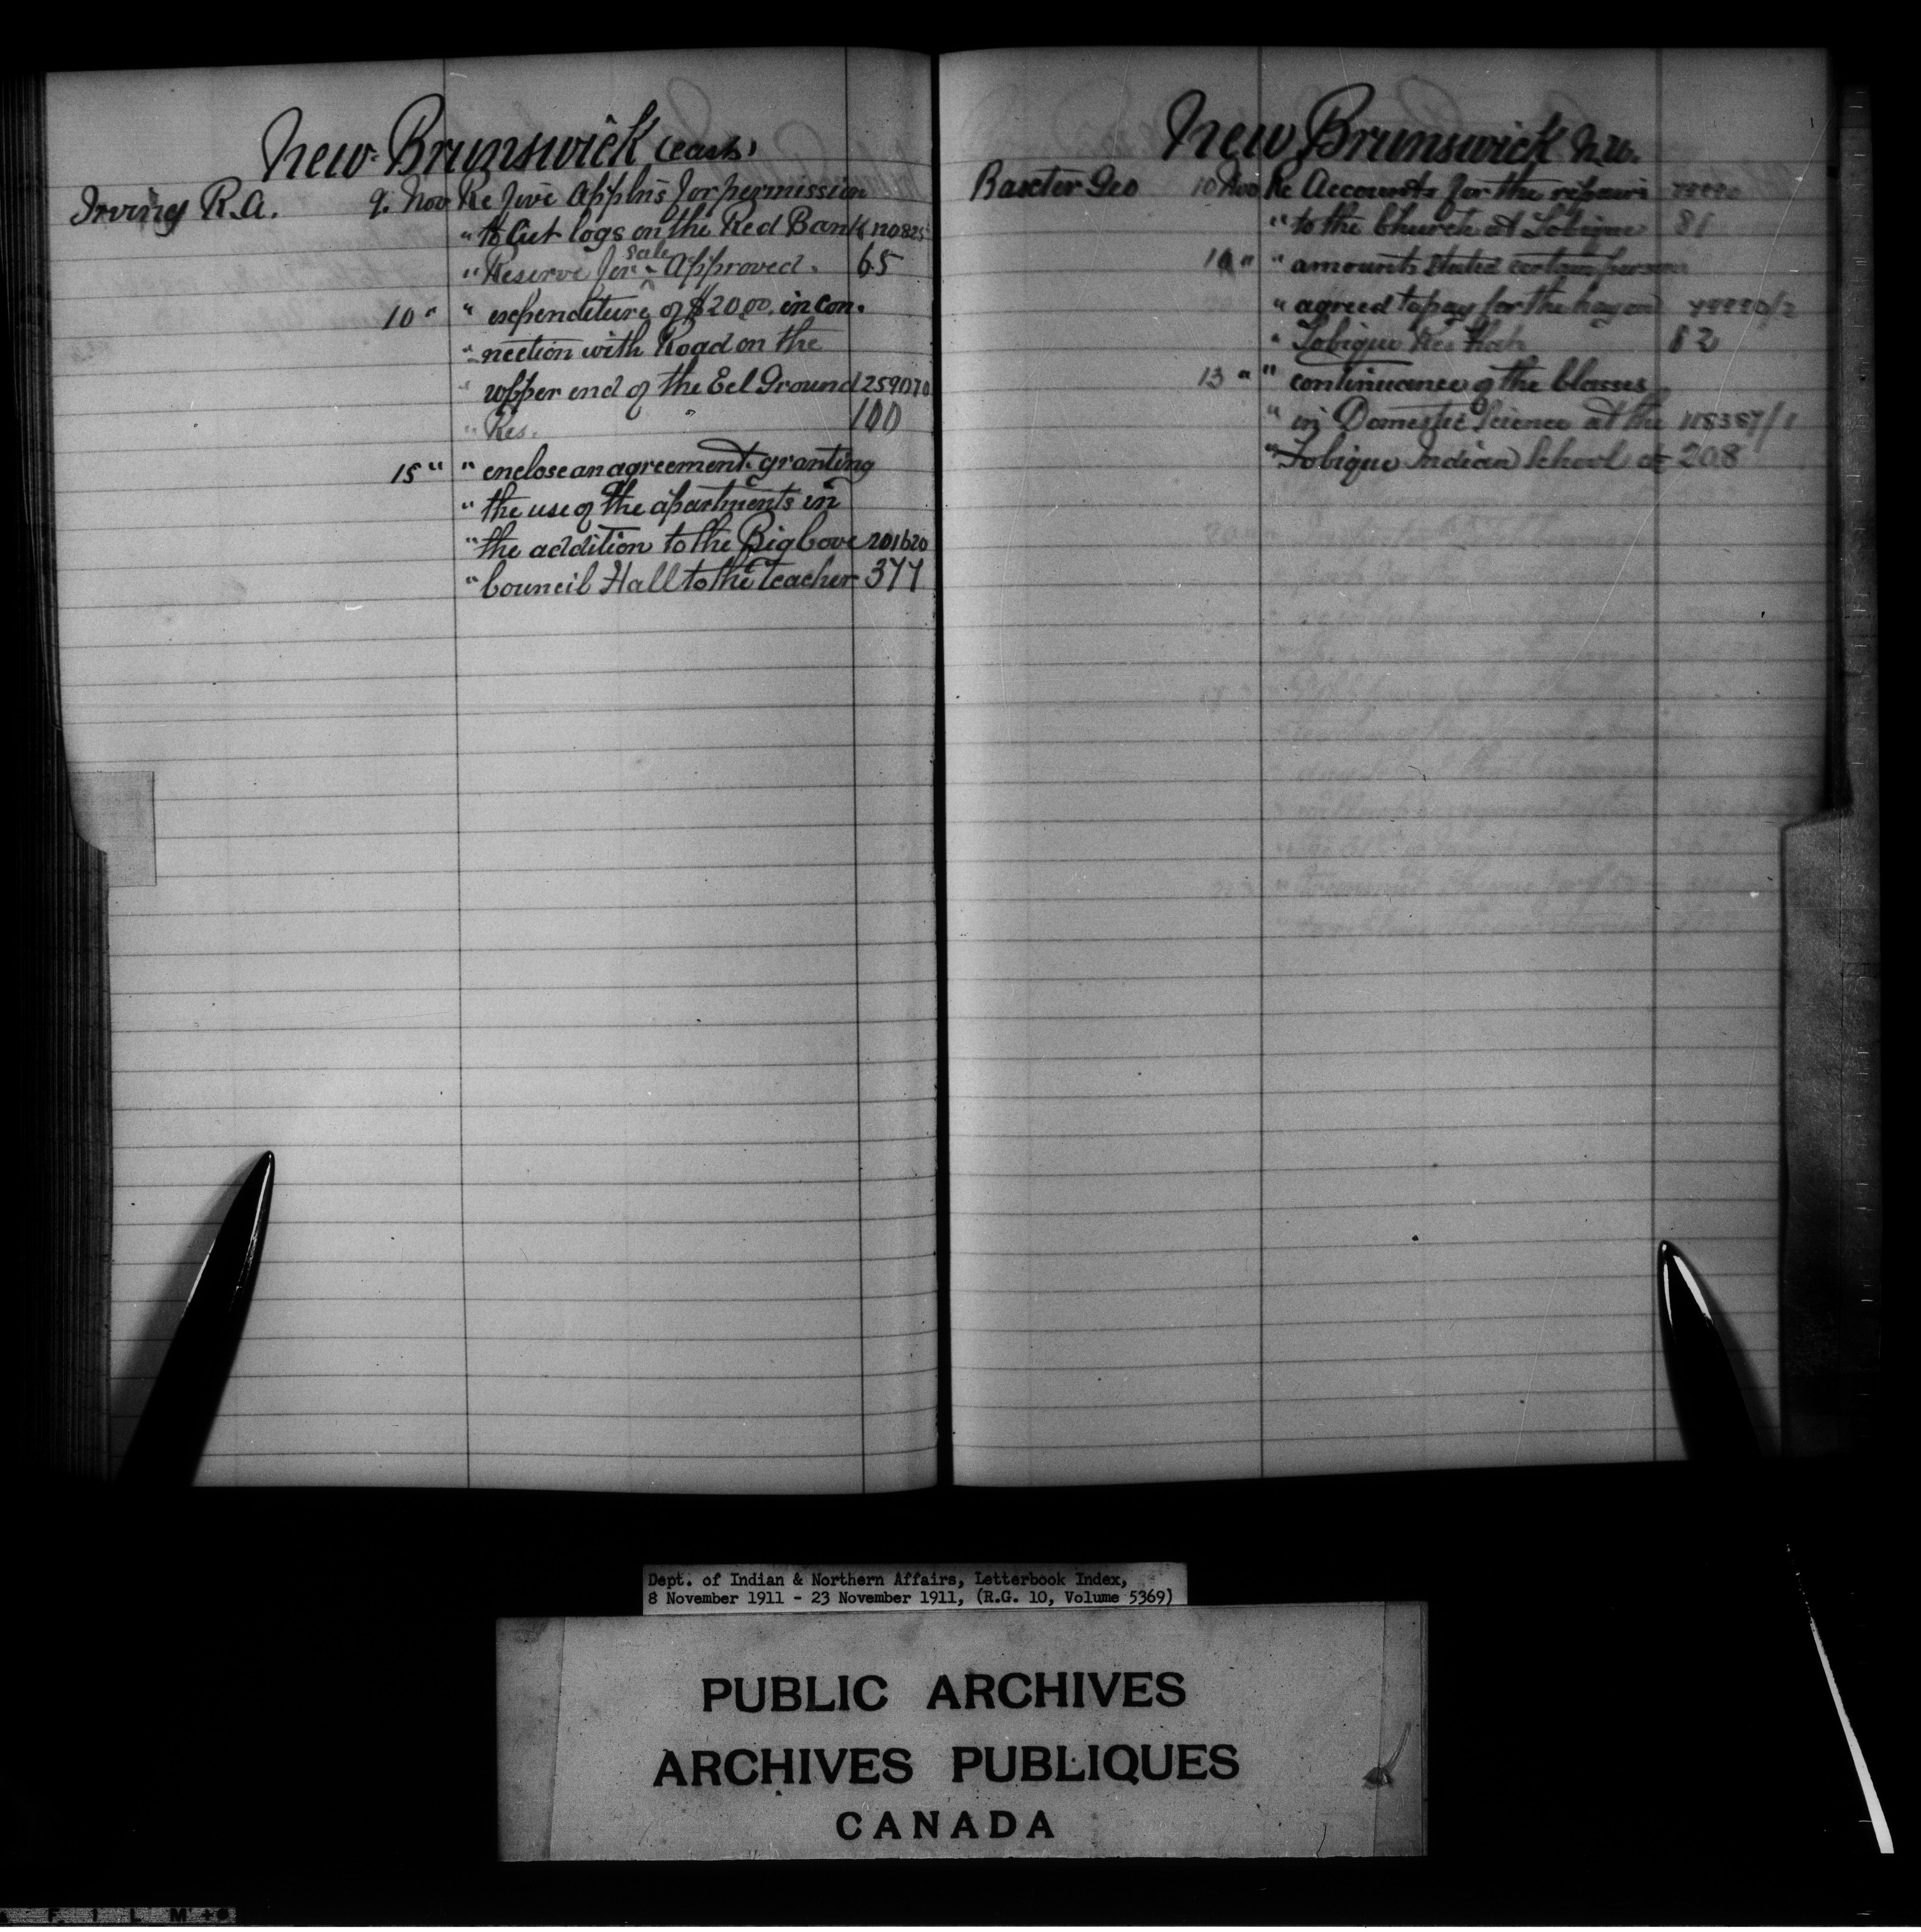 New Brunswick (East)
Irving R.A. 9. Nov Re five Applns for permission
" to Cut logs on the Red Bank 110825
" Reserve for Sale Approved. 65
10 " " expenditure of $20.00 in con.
" nection with Road on the
" upper end of the Eel Ground 259070
" Res. " 100
15 " " enclose an agreement granting
" the use of the apartments in
" the addition to the Big Cove 201620
" Council Hall to the teacher 377
New Brunswick N.W.
Baxter Geo 10 Nov Re Accounts for the repairs
" to the Church at Tobique 81
10 " " amounts stated certain person
" agreed to pay for the hay on
" Tobique Res 82
13 " " continuance of the Classes
" in Domestic Science at the 118387/1
" Tobique Indian School 208
Dept. of Indian & Northern Affairs, Letterbook Index,
8 November 1911 - 23 November 1911, (R.G. 10, Volume 5369)
PUBLIC ARCHIVES
ARCHIVES PUBLIQUES
CANADA